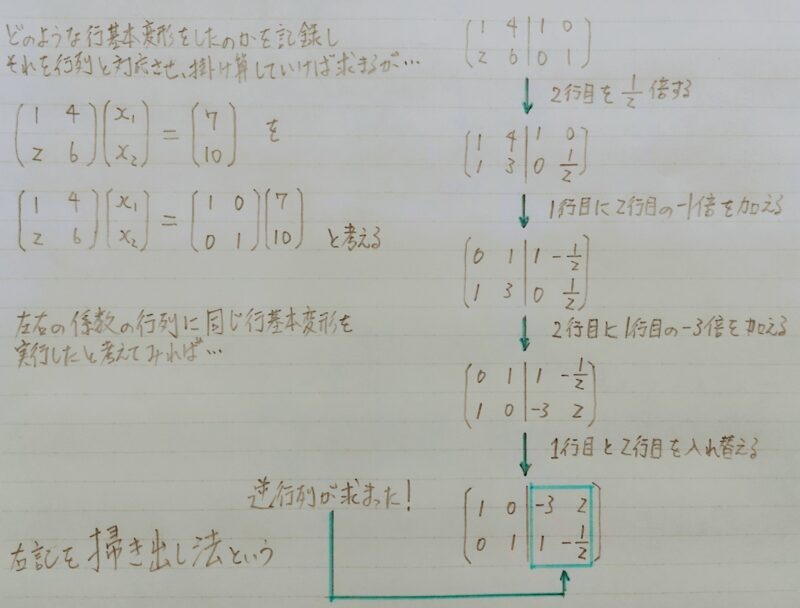 どのような行基本変形をしたのかを記録し
それを行列と対応させ、掛け算していけば求まるが…
(1 4
2 6)(x₁
x₂) = (7
10) を
(1 4
2 6)(x₁
x₂) = (1 0
0 1)(7
10) と考える
左右の係数の行列に同じ行基本変形を
実行したと考えてみれば…
(1 4 | 1 0
2 6 | 0 1)
2行目を 1/2 倍する
(1 4 | 1 0
1 3 | 0 1/2)
1行目に2行目の-1倍を加える
(0 1 | 1 -1/2
1 3 | 0 1/2)
2行目に1行目の-3倍を加える
(0 1 | 1 -1/2
1 0 | -3 2)
1行目と2行目を入れ替える
(1 0 | -3 2
0 1 | 1 -1/2)
逆行列が求まった!
右記を掃き出し法という